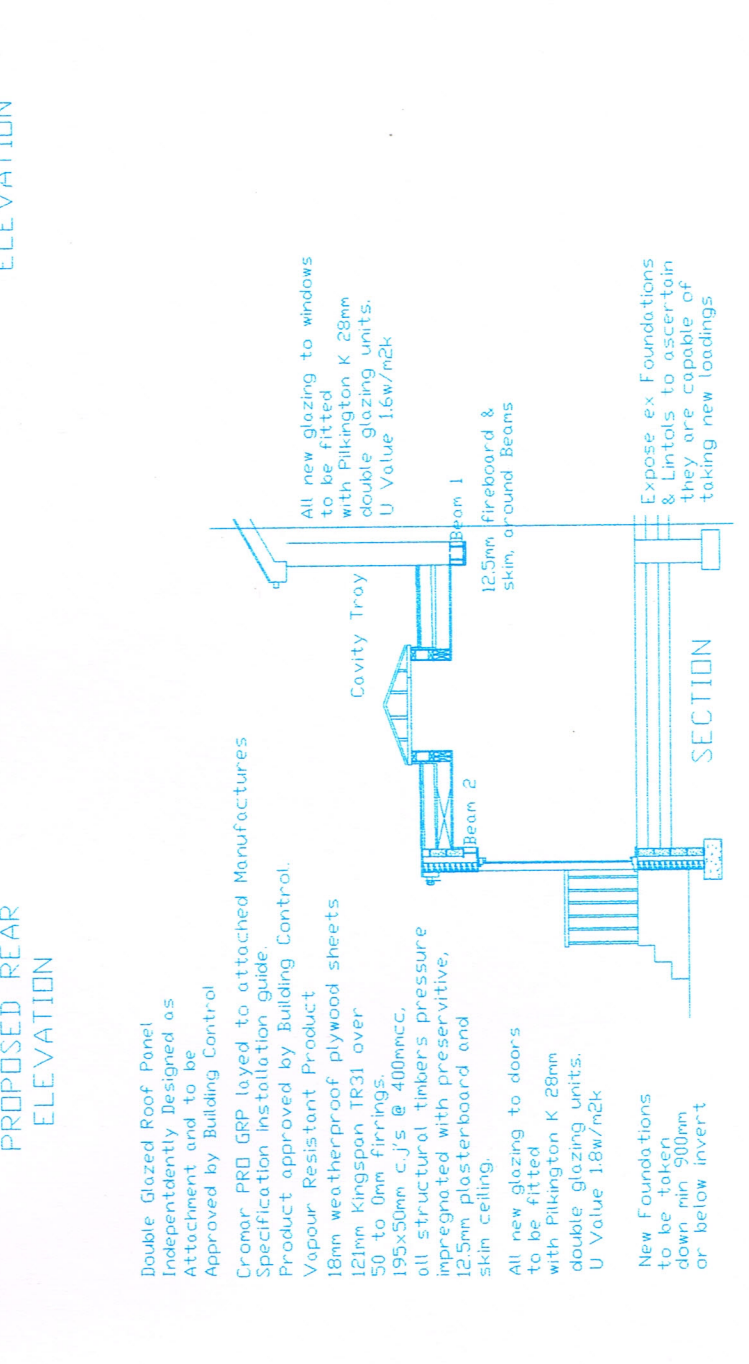 PROPOSED REAR
ELEVATION
ELEVATION
Double Glazed Roof Panel
Indepentdently Designed as
Attachment and to be
Approved by Building Control
Cromar PRO GRP layed to attached Manufactures
Specification Installation guide.
Product approved by Building Control.
Vapour Resistant Product
18mm weatherproof plywood sheets
121mm Kingspan TR31 over
50 to 0mm firrings.
195x50mm c.j's @ 400mmcc,
all structural timbers pressure
impregnated with preservitive,
12.5mm plasterboard and
skim ceiling.
All new glazing to doors
to be fitted
with Pilkington K 28mm
double glazing units.
U Value 1.8w/m2k
New Foundations
to be taken
down min 900mm
or below invert
All new glazing to windows
to be fitted
with Pilkington K 28mm
double glazing units.
U Value 1.6w/m2k
Cavity Tray
Beam 1
12.5mm fireboard &
skim, around Beams
Beam 2
Expose ex Foundations
& Lintols to ascertain
they are capable of
taking new loadings
SECTION